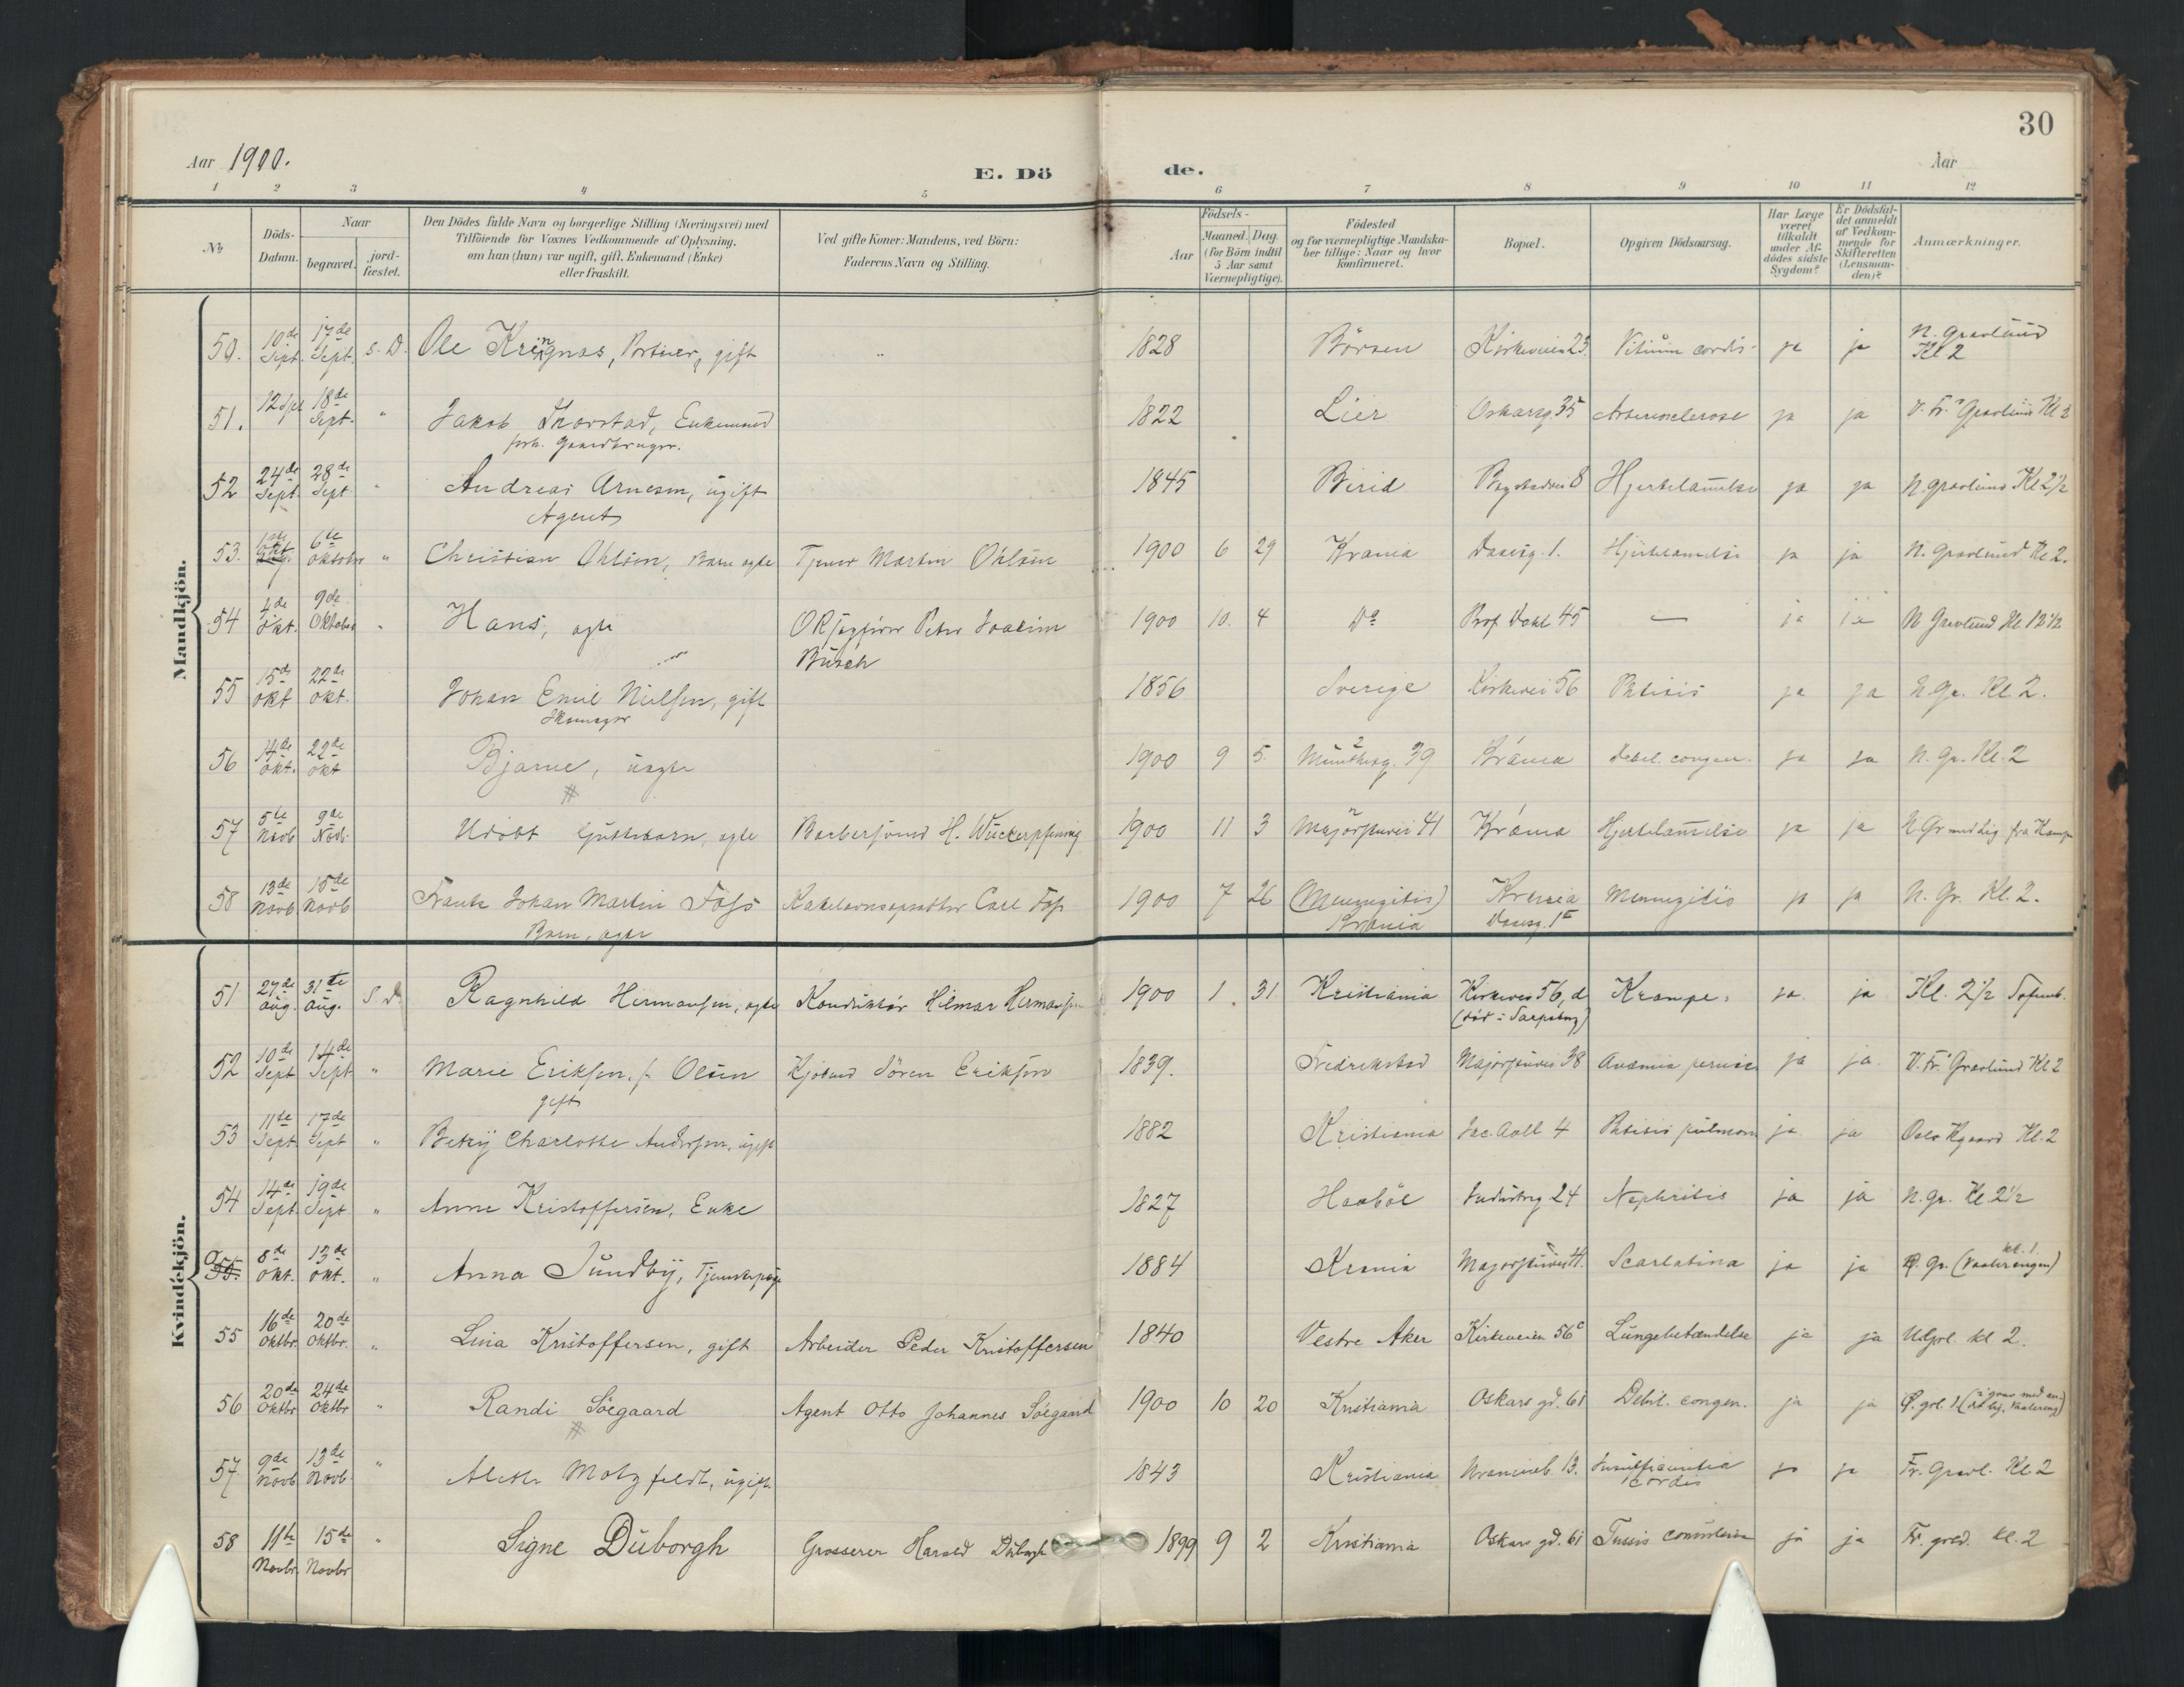 30
Aar 1900.
E. Dö de.
Aar
1 2 3 4 5 6 7 8 9 10 11 12
No
Döds-Datum.
Naar
begravet.
jord-fæstet.
Den Dödes fulde Navn og borgerlige Stilling (Næringsvei) med
Tilföiende for Voxnes Vedkommende af Oplysning,
om han (hun) var ugift, gift, Enkemand (Enke)
eller fraskilt.
Ved gifte Koner: Mandens, ved Börn:
Faderens Navn og Stilling.
Födsels-
Aar
Maaned. Dag.
(for Börn indtil
5 Aar samt
Værnepligtige).
Födested
og for værnepligtige Mandska-
ber tillige: Naar og hvor
konfirmeret.
Bopæl.
Opgiven Dödsaarsag.
Har Læge
været
tilkaldt
under Af-
dödes sidste
Sygdom?
Er Dödsfal-
det anmeldt
af Vedkom-
mende for
Skifteretten
(Lensman-
den)?
Anmærkninger.
Mandkjön.
50. 10de Sept. 17de Sept. S. D. Ole , Portner, gift " 1828 Börsen Kirkeveien 23. Vitium cordis ja ja N. Gravlund Kl 2
51. 12 Spt 18de Sept. " Jakob Thorstad, Enkemand 1822 Lier Oskarsg. 35 Arteriosclerose ja ja V. Fr. Gravlund Kl 2
forh. Gaardbruger.
52 24de Sept. 28de Sept " Andreas Arnesen, ugift 1845 Birid 8 Hjertelammelse ja ja N. gravlund Kl 2½
Agent
53. 1ste Okt 6te oktober " Christian Ohlson, Barn ægte Tjener Martin Ohlson 1900 6 29 Krania Daasg. 1. Hjertelammelse ja ja N. Gravlund Kl 2.
54 4de Okt. 9de Oktober " Hans, ægte ORsagfører Peter Joakim 1900 10. 4 Do Prof Dahl 45 — ja ja N Gravlund Kl 12½
Busch
55 15de okt 22de okt. Johan Emil Nielsen, gift 1856 Sverige Kirkevei 56 Phtisis ja ja N. Gr. Kl. 2.
Skomager
56 14de okt. 22de okt Bjarne, uægte 1900 9 5. 39 Krania Debil. congen. ja ja N. Gr. Kl. 2
57 5te Novb 9de Novb. Udöbt Guttebarn, ægte Barbersvend H. Wuckerpfennig 1900 11 3 Majorstuvei 41 Krania Hjertelammelse ja ja N. Gr
58 13de Novb 15de Novb Frants Johan Martin Foss Kakelovnsopsætter Carl Foss 1900 7 26 (Menengitis) Krania Menengitis ja ja N. Gr. Kl. 2.
Barn, ægte Krania Daasg. 1
Kvindekjön.
51 27de Aug. 31te Aug. S D. Ragnhild Hermansen, ægte Konduktör Hilmar Hermansen 1900 1 31 Kristiania Kirkevei 56, d Krampe ja ja Kl. 2½
(död i Sarpsborg)
52 10de Sept 14de Sept " Marie Eriksen, f. Olsen Kjøbmd Sören Eriksen 1839. Fredrikstad Majorstuvei 38 Anæmia pernic ja ja V. Fr. Gravlund Kl 2
gift
53 11te Sept. 17de Sept " Betzy Charlotte Andersen, ugift 1882 Kristiania Jac. Aall 4 Phtisis pulmon ja ja Oslo Kgaard Kl. 2
54 14de Sept. 19de Sept. " Anne Kristoffersen, Enke 1827 Haaböl Industrig 24 Nephritis ja ja N. Gr. Kl. 2½
55. a 8de Okt. 13de okt. " Anna Sundby, Tjenestepige 1884 Krania Majorstuvei Scarlatina ja ja Ø. Gr. (Vaalerengen) kl. 1.
55 16de Oktbr. 20de Oktbr. " Lina Kristoffersen, gift Arbeider Peder Kristoffersen 1840 Vestre Aker Kirkeveien 56c Lungebetændelse ja ja Ndgvl. kl 2.
56 20de Oktbr 24de Oktbr " Randi Söegaard Agent Otto Johannes Söegaard 1900 10 20 Kristiania Oskars gd. 61 Debil. congen. ja ja Ø. gvl. 1 (i grav med an- , Vaalereng)
57 9de Novb 13de Novb. " Alette Motzfeldt, ugift. 1843 Kristiania Uranienb. 13. Insufficientia ja ja Fr. Gravl. Kl. 2
cordis
58 11te Novbr. 15de Novbr " Signe Duborgh Grosserer Harald Duborgh 1899 9 2 Kristiania Oskars gd. 61 Tussis convulsiva ja ja Fr. gvld. kl. 2